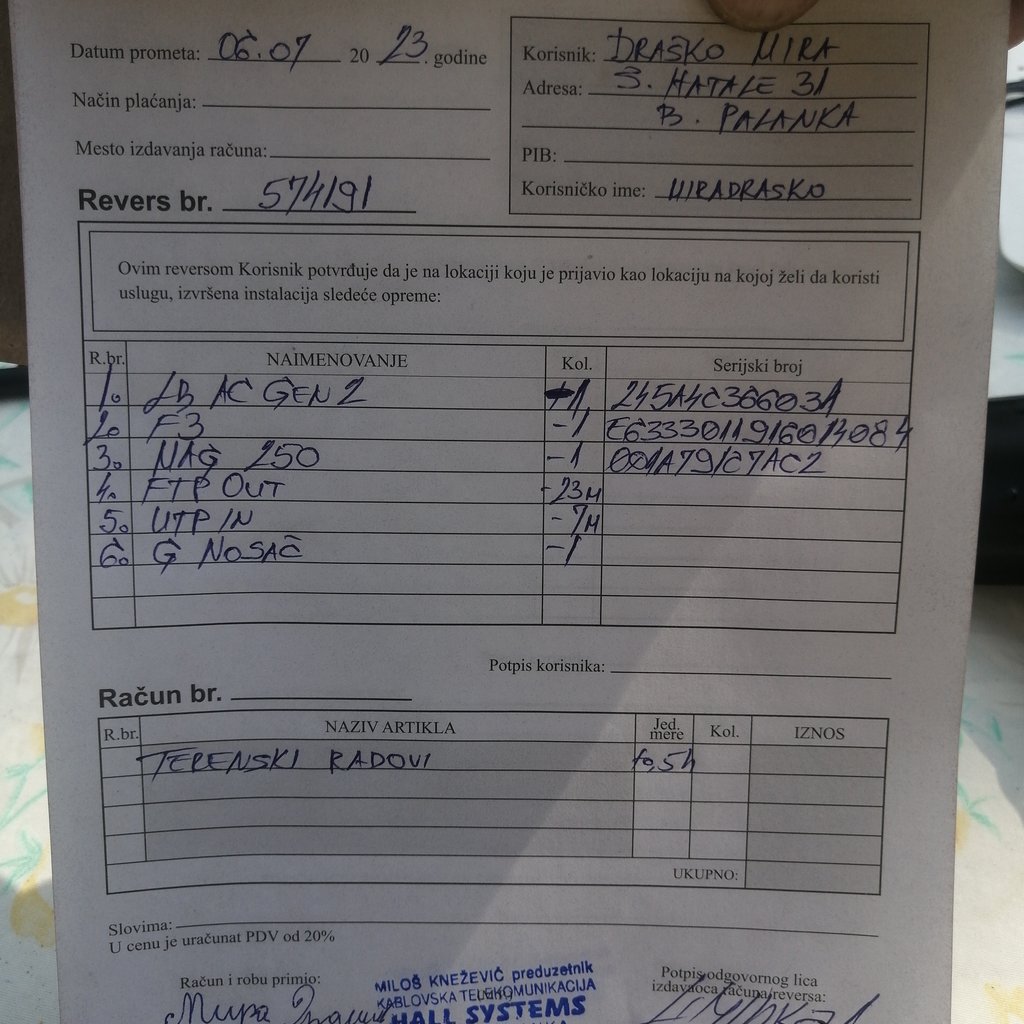 Datum prometa: 06.07 20 23. godine
Način plaćanja:
Mesto izdavanja računa:
Revers br. 574191
Korisnik: DRAŠKO MIRA
Adresa: Š. MATALE 31
B. PALANKA
PIB:
Korisničko ime: MIRADRASKO
Ovim reversom Korisnik potvrđuje da je na lokaciji koju je prijavio kao lokaciju na kojoj želi da koristi
uslugu, izvršena instalacija sledeće opreme:
R.br. NAIMENOVANJE Kol. Serijski broj
1. LB AC GEN 2 1 245A4C366031
2. F3 -1 E6333011916014084
3. MAG 250 -1 001A791C7AC2
4. FTP OUT -23м
5. UTP IN -7м
6. G NOSAČ -1
Potpis korisnika:
Račun br.
R.br. NAZIV ARTIKLA Jed. mere Kol. IZNOS
TERENSKI RADOVI 0,5h
UKUPNO:
Slovima:
U cenu je uračunat PDV od 20%
Račun i robu primio:
Мира
MILOŠ KNEŽEVIĆ preduzetnik
KABLOVSKA TELEKOMUNIKACIJA
HALL SYSTEMS
Potpis odgovornog lica
izdavaoca računa/reversa: